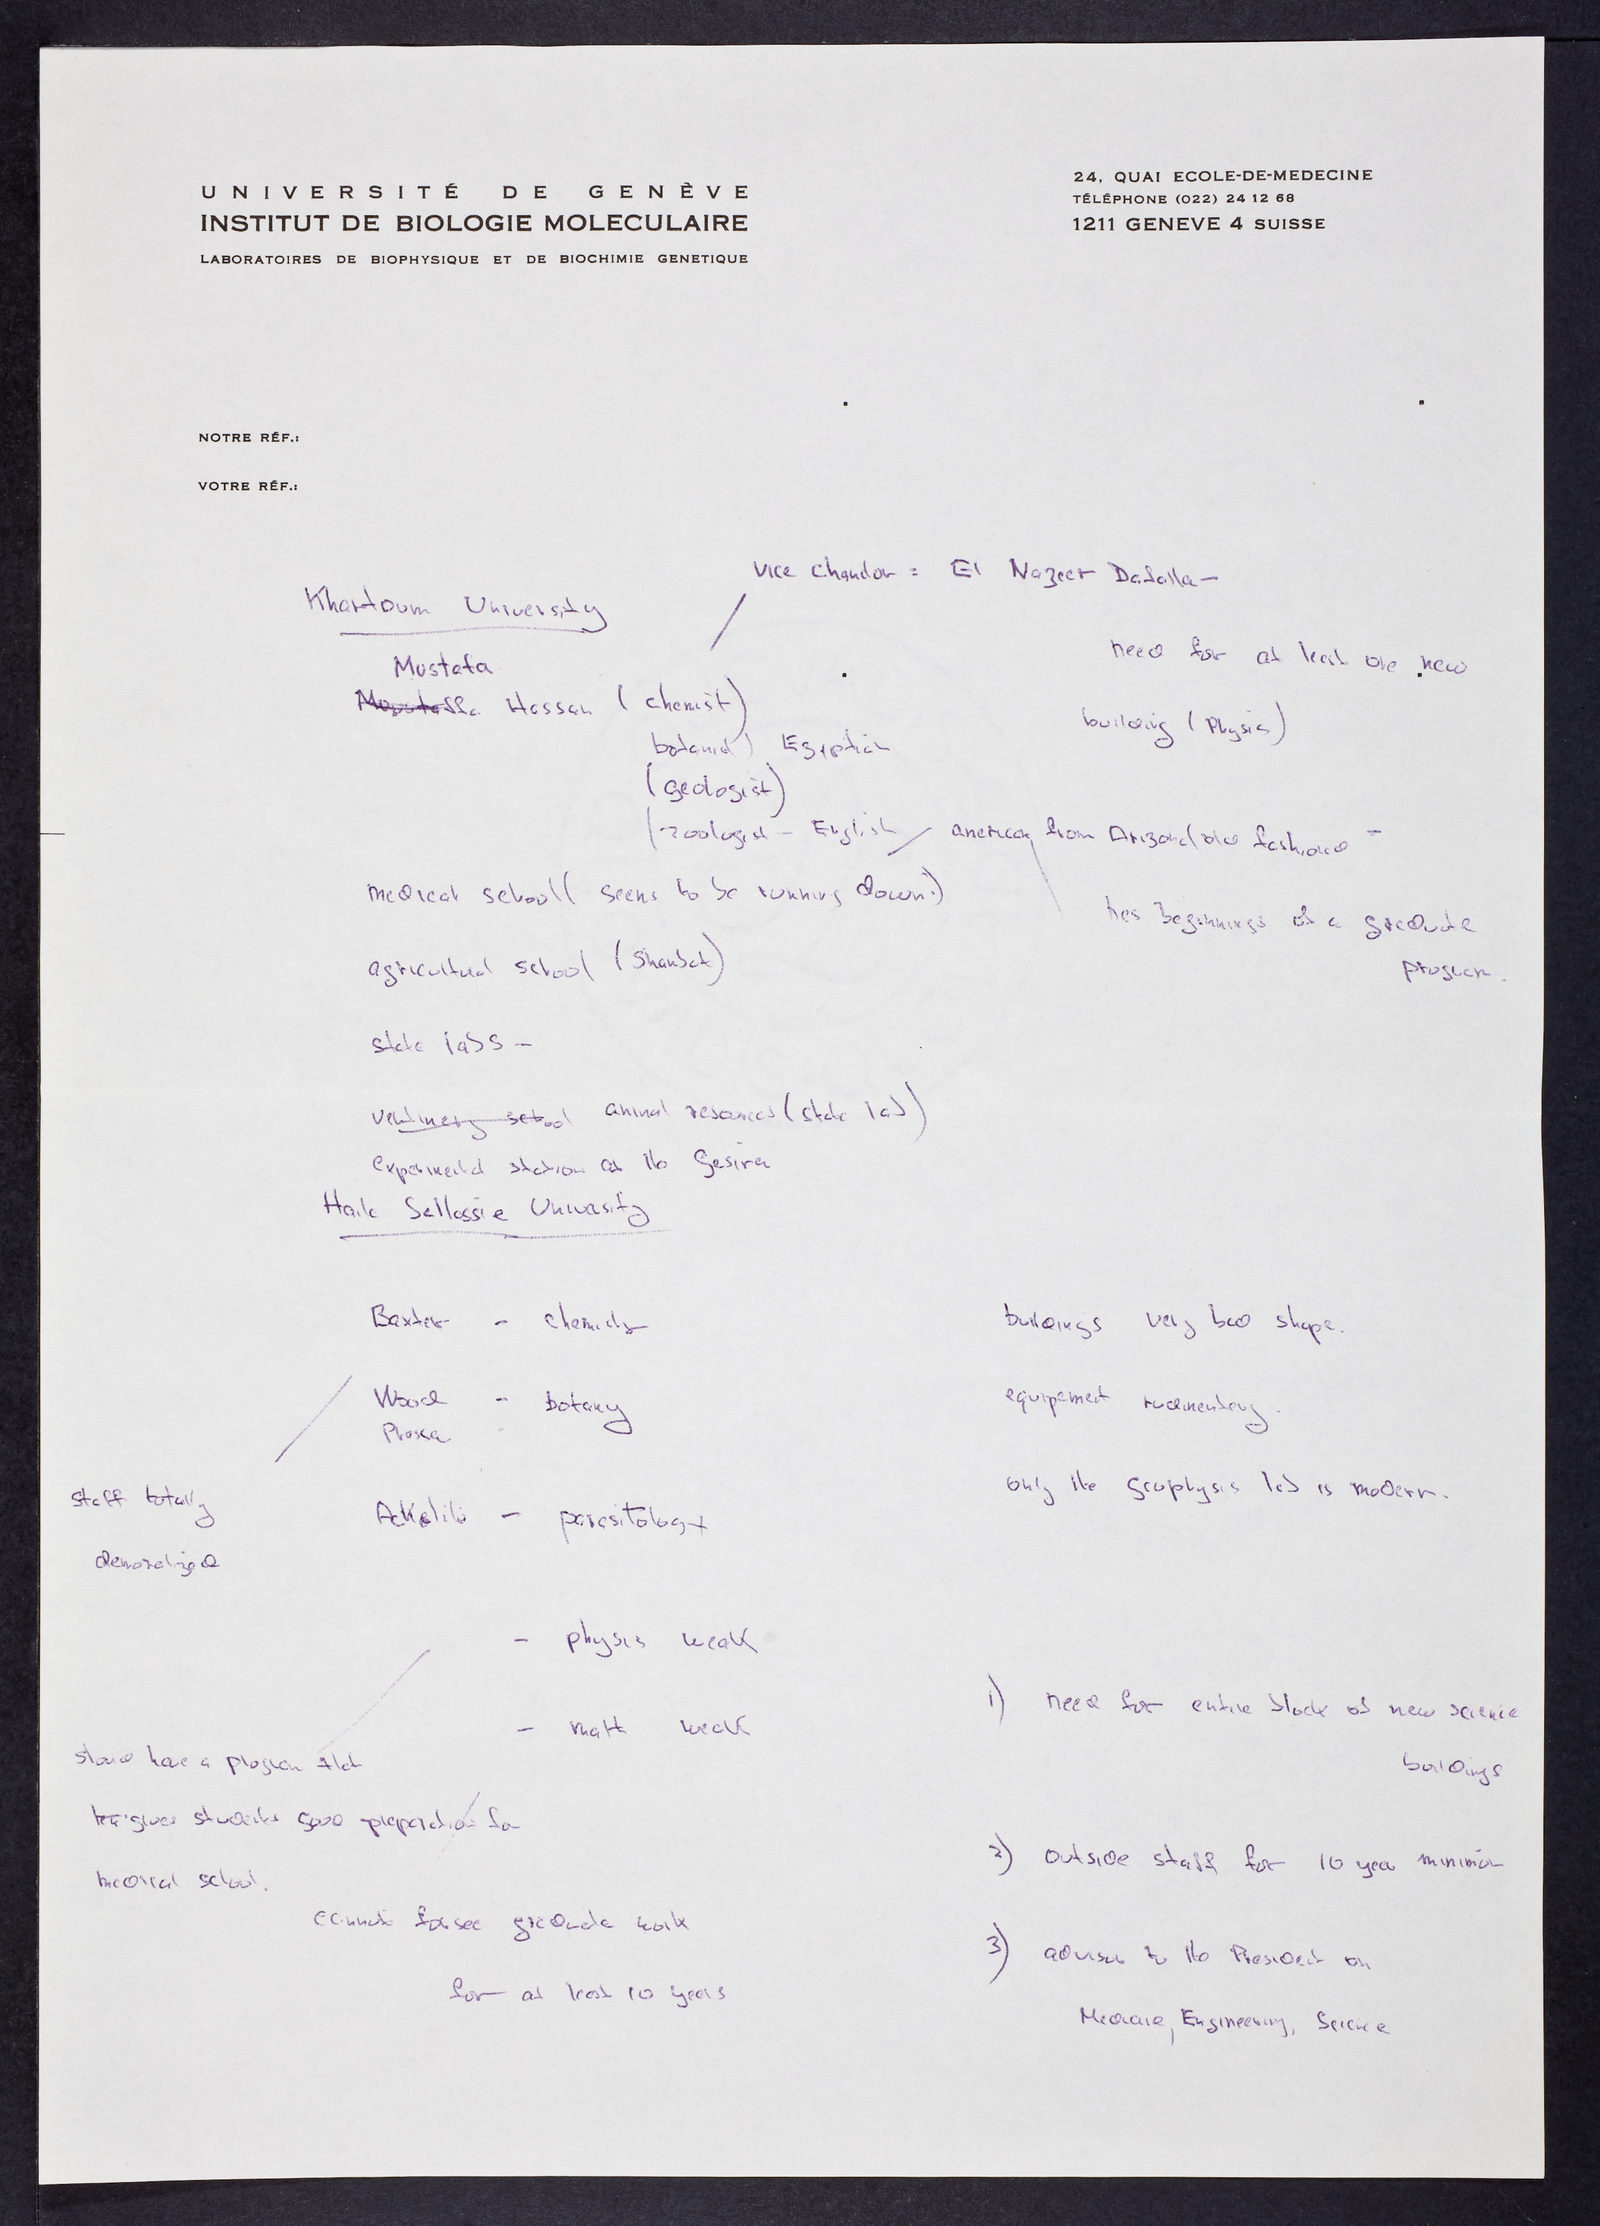 UNIVERSITÉ DE GENÈVE
INSTITUT DE BIOLOGIE MOLECULAIRE
LABORATOIRES DE BIOPHYSIQUE ET DE BIOCHIMIE GENETIQUE
24, QUAI ECOLE-DE-MEDECINE
TÉLÉPHONE (022) 24 12 68
1211 GENEVE 4 SUISSE
NOTRE RÉF.:
VOTRE RÉF.:
Vice = El Nazeer Dafalla -
Khartoum University
need for at least one new
building (Physics)
Mustafa
Hassan (chemist)
botanist) Egyptian
(geologist)
(zoologist - English / american from Arizona (old fashioned -
medical school ( seems to be running down?)
has beginnings of a graduate
program.
agricultural school (Shambat)
state labs -
vetinery school animal resources (state lab)
experimental station at the Gesira
Haile Sellassie University
Baxter - chemistry
Wood - botany
Ackalilo - parasitology
- physics weak
- math weak
staff totally
demoralized
should have a program that
gives students good preparation for
medical school.
cannot forsee graduate work
for at least 10 years
buildings very bad shape.
equipement rudimentary.
only the geophysics lab is modern.
1) need for entire block of new science
buildings
2) outside staff for 10 year
3) advisor to the President on
Medicine, Engineering, Science